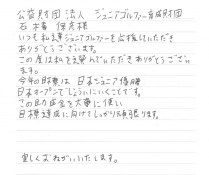 公益財団法人 ジュニアゴルファー育成財団
石橋 保彦様
いつも私達ジュニアゴルファーを応援していただき
ありがとうございます。
この度は私を支援していただきありがとうござい
ます。
今年の目標は 日本ジュニア優勝
日本オープンでじょういにいくことです。
この助成金を大事に使い
目標達成に向けてしっかり頑張ります。
宜しくおねがいいたします。